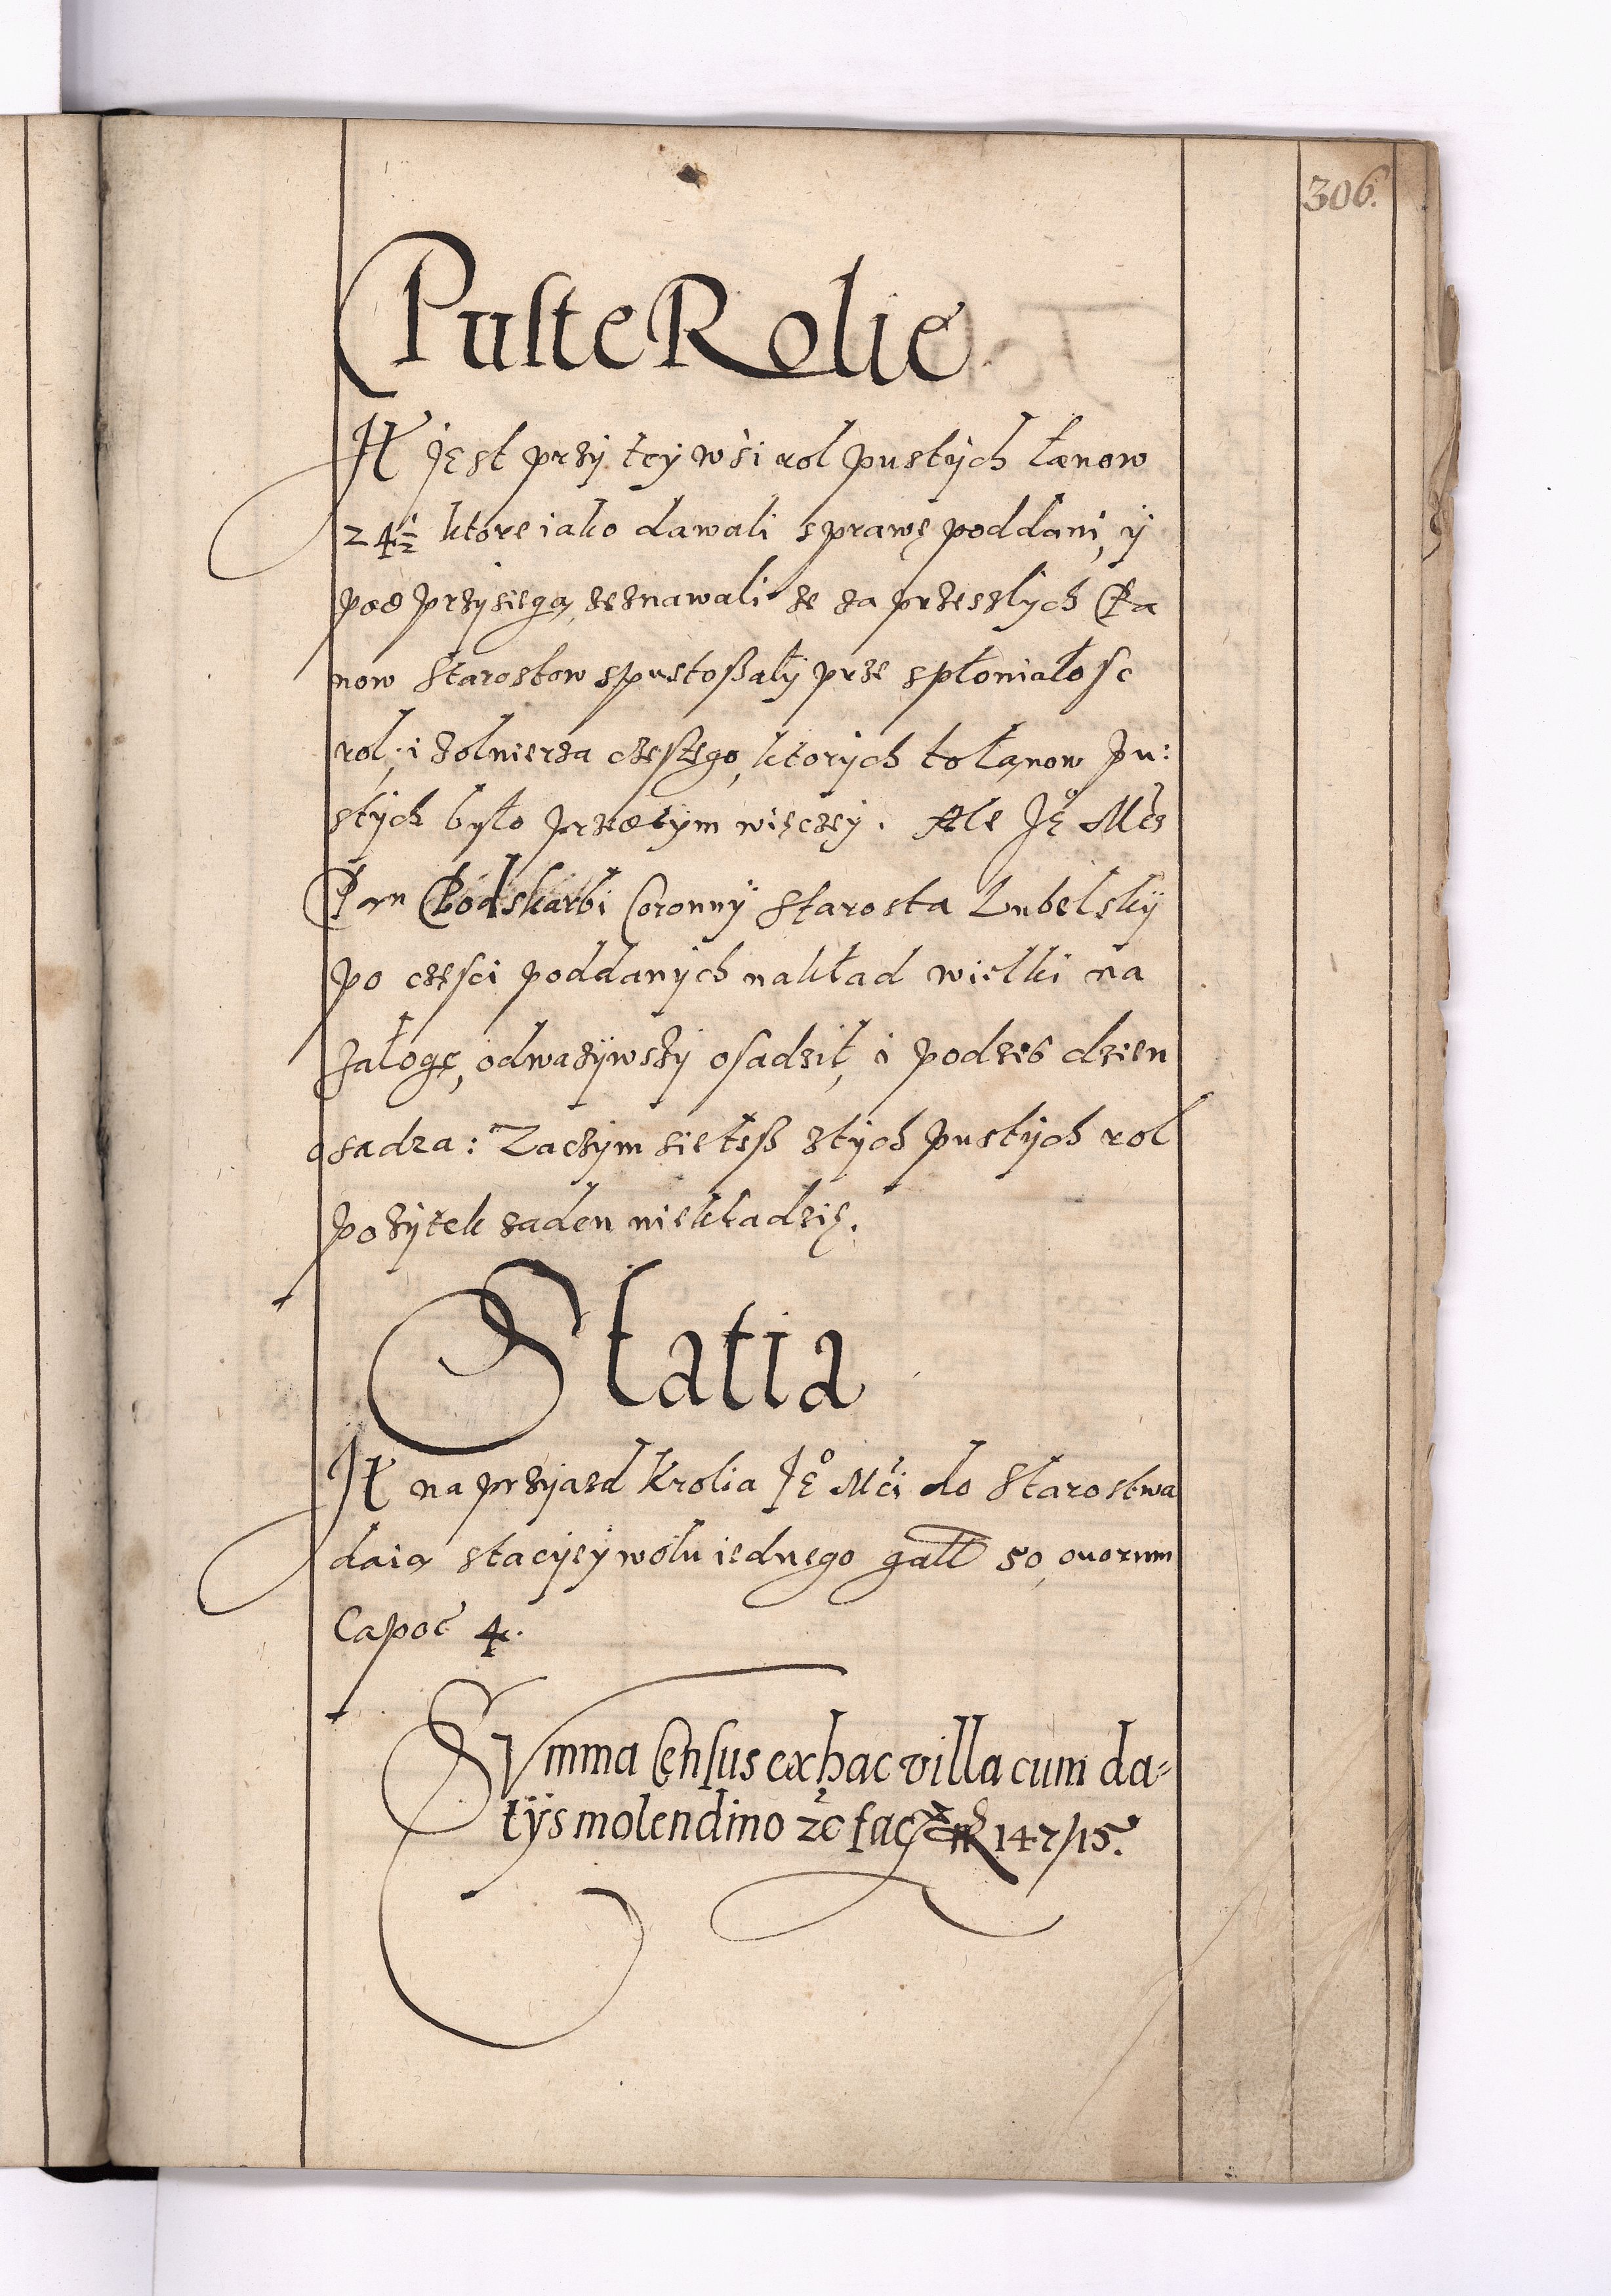 306.
Puste Rolie
It jest przy tey wsi rol pustych łanow
24½ ktore iako dawali sprawę poddani, y
pod przysięgą zeznawali ze za przeszlych Pa
now Starostow spustoszały prze spłoniałosc
rol, i zolnierza częstego, ktorych to łanow pu:
stych było przedtym więczey. Ale Jeº Mcz
Pan Podskarbi Coronny Starosta Lubelsky
po częsci poddanych nakład wielki na
załogę, odwazywszy osadził, i podzis dzien
osadza: Zaczym sie tesz ztych pustych rol
pozytek zaden niekładzię.
Statia
It na przyiazd Krolia Jeº Mći do Starostwa
daią stacyey wołu iednego gall 50, ouorum
Capoc 4.
Summa Census ex hac villa cum da-
tys molendino &c fac 147/15.